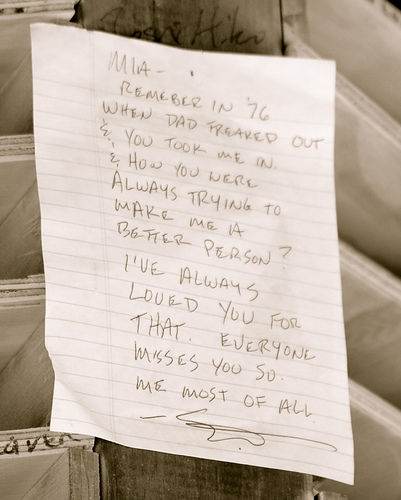 MIA-
REMEBER IN '76
WHEN DAD FREAKED OUT
& YOU TOOK ME IN.
& HOW YOU WERE
ALWAYS TRYING TO
MAKE ME A
BETTER PERSON?
I'VE ALWAYS
LOVED YOU FOR
THAT. EVERYONE
MISSES YOU SO.
ME MOST OF ALL